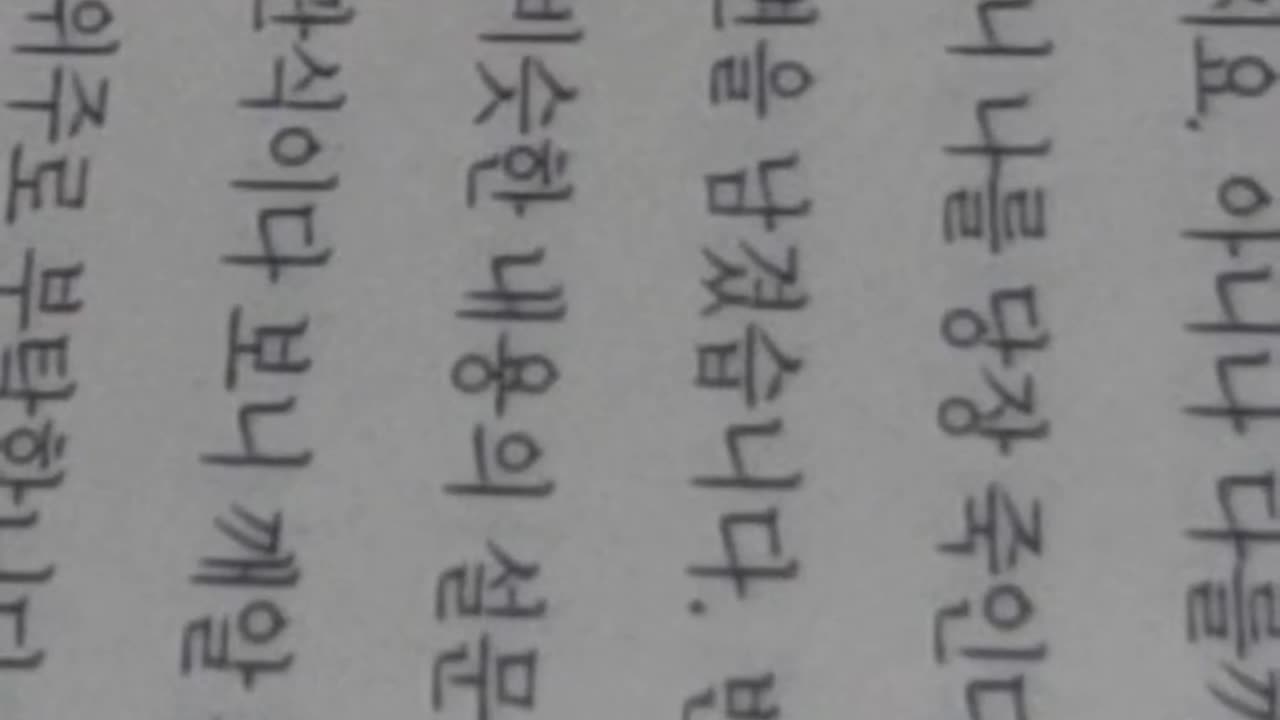 아니나 다를
니 나를 당장 죽인다
을 남겼습니다.
비슷한 내용의 설문
식이다 보니 깨알
위주로 부탁합니다